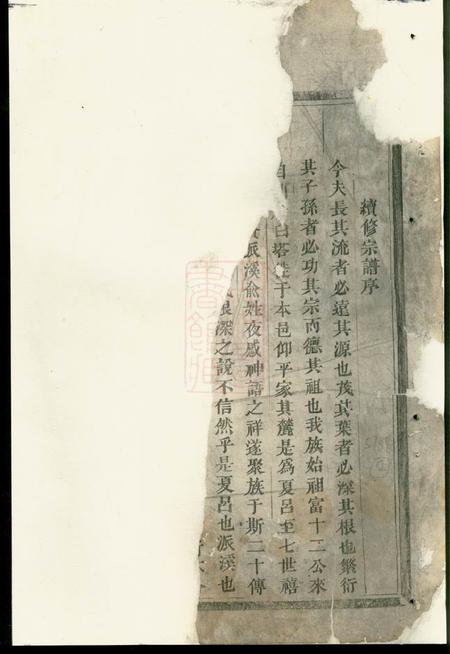 續修宗譜序
今夫長其流者必遠其源也茂其葉者必深其根也繁衍
其子孫者必功其宗而德其祖也我族始祖富十二公來
自 白塔 于本邑仰平家其麓是爲夏呂至七世禧
派溪俞姓夜感神語之祥遂聚族于斯二十傳
根深之說不信然乎是夏呂也派溪也
書館